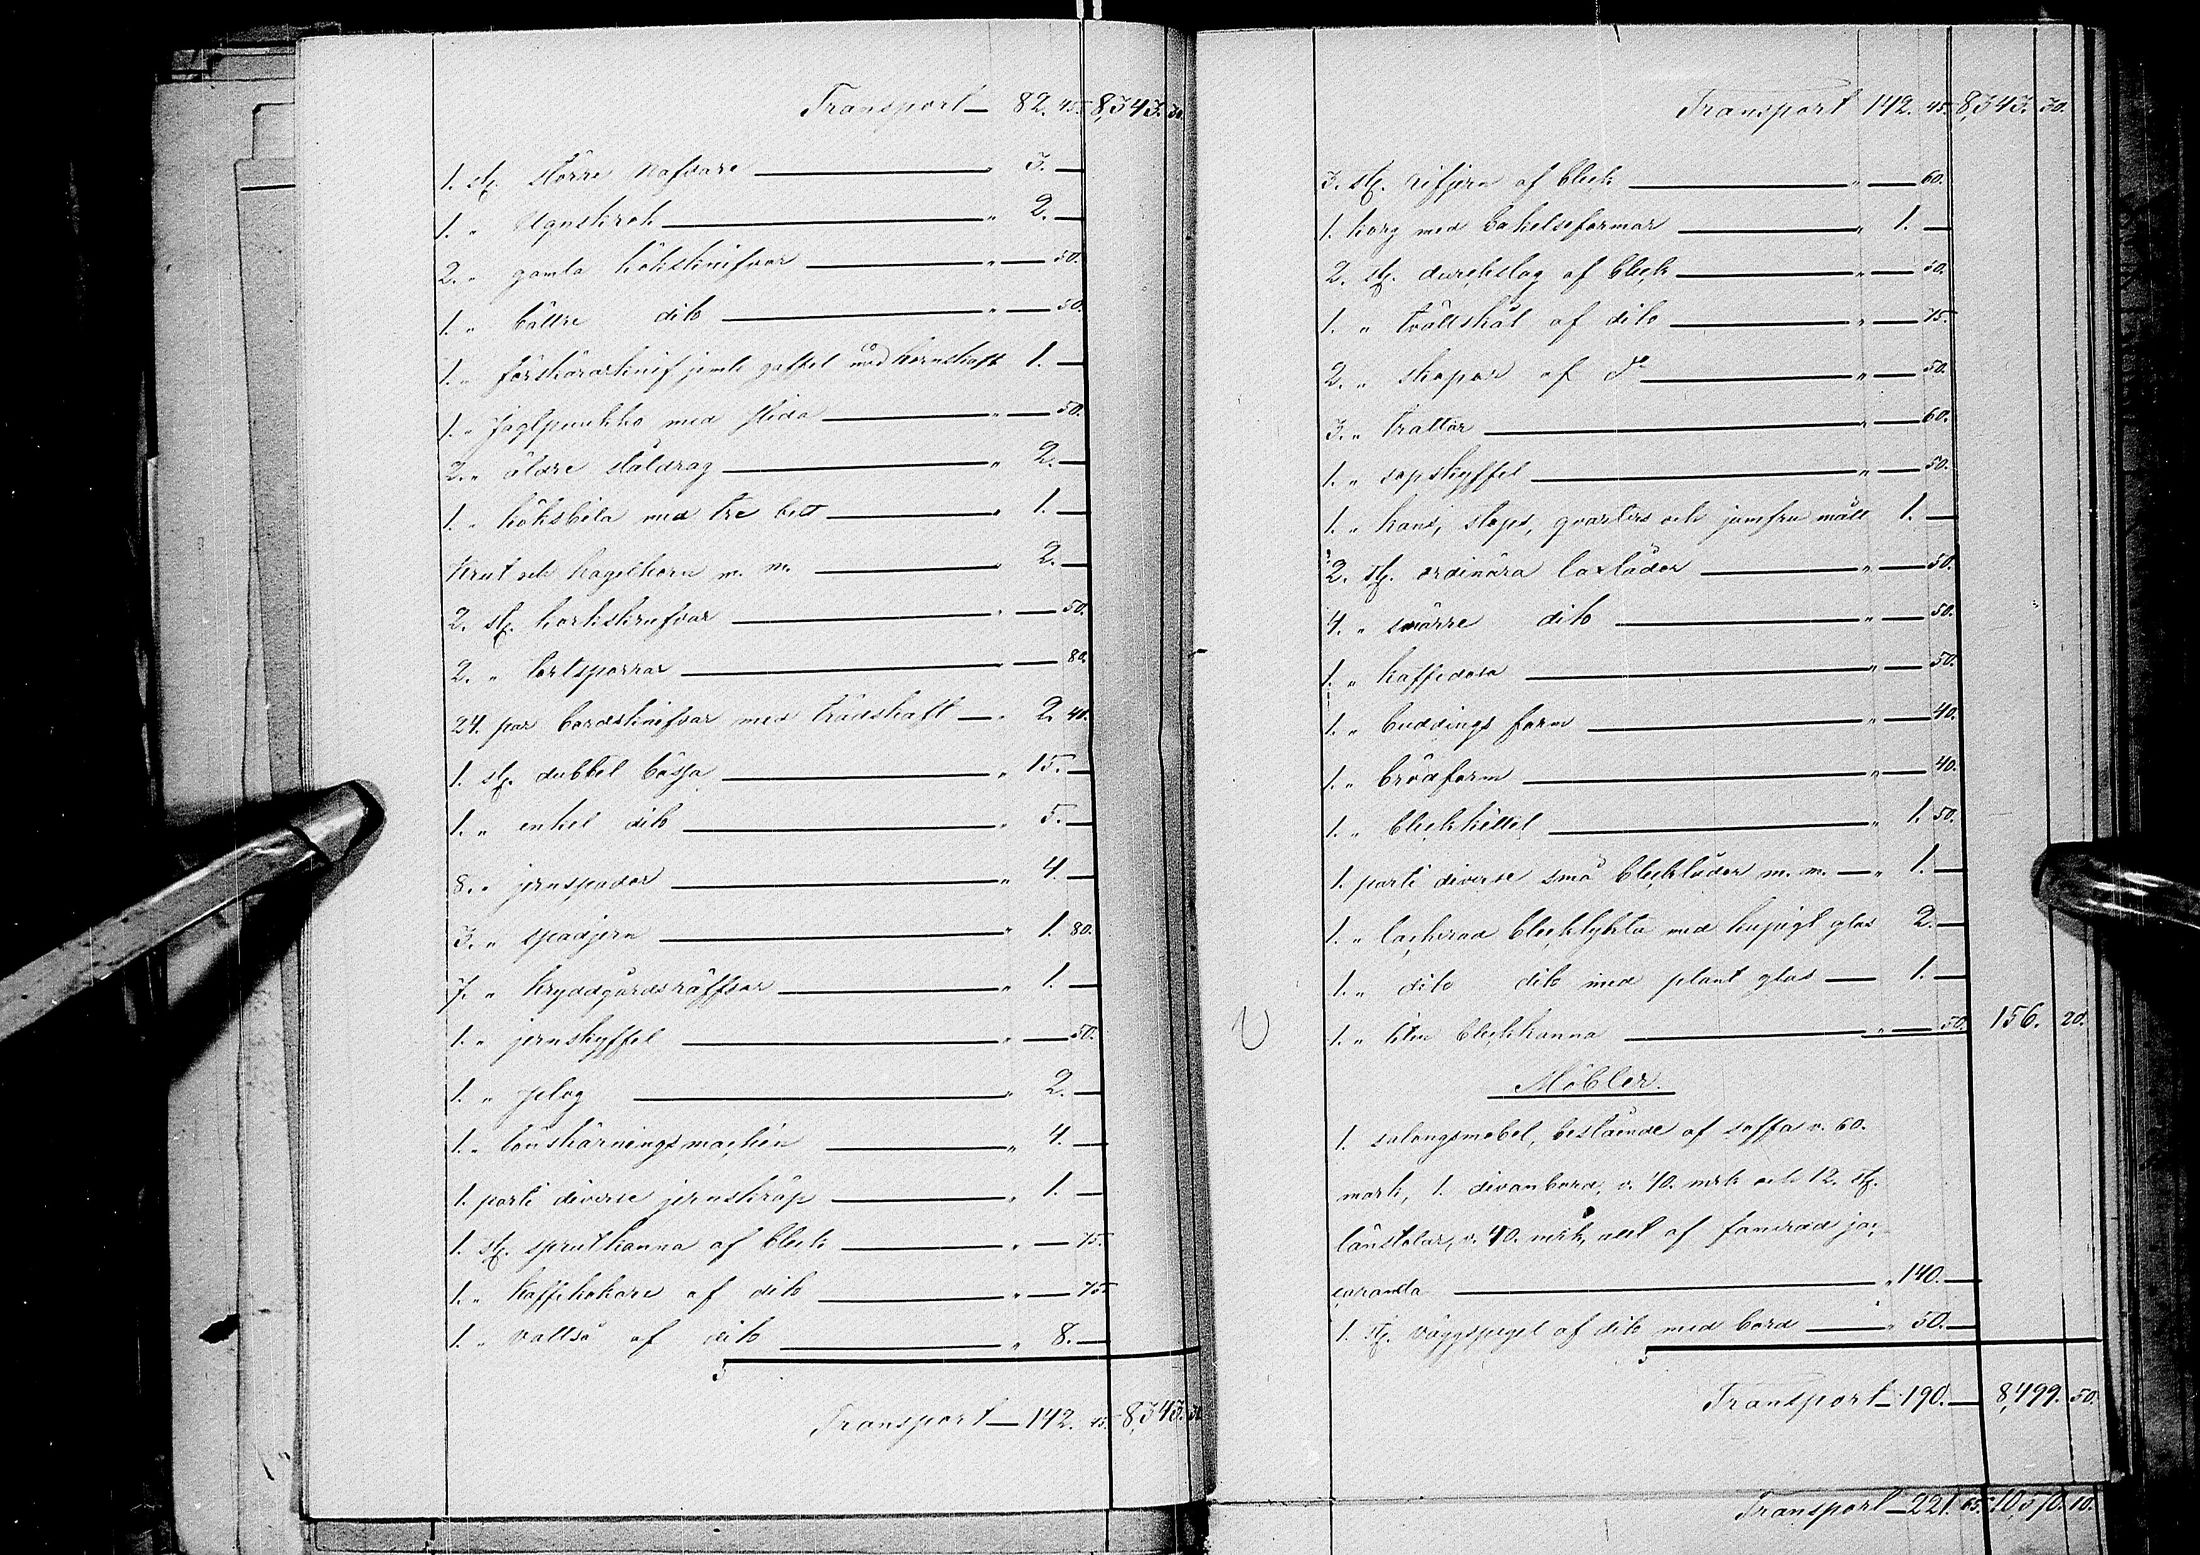 Transport — 82. 45. 8,343. 30.
1. st. större nafvare — " 3. —
1. " Ugnskrok — " 2. —
2. " gamla köksknifvar — " — 50.
1. " bättre dito — " — 50.
1. " förskärarknif jemte gaffel med hornskaft 1. —
1. " Jagtpuukko med slida — " — 50.
2. " äldre ståldrag — " 2. —
1. " köksbila med tre bett — " 1. —
Krut och hagelhorn m. m. — " 2. —
2. st. korkskrufvar — " — 50.
2. " tortsporrar — " — 80.
24. par bordsknifvar med trädskaft — " 2. 40.
1. st. dubbel bössa — " 15. —
1. " enkel dito — " 5. —
8. " jernspador — " 4. —
3. " spadjern — " 1. 80.
7. " kryddgårdsräffsor — " 1. —
1. " jernskyffel — " — 50.
1. " plog — " 2. —
1. " bönskärningsmachin — " 4. —
1. parti diverse jernskråp — " 1. —
1. st. sprutkanna af bleck — " — 75.
1. " kaffekokare af dito — " — 75.
1. " vattså af dito — " 8. —
Transport — 142. 45. 8,343. 30.
Transport 142. 45. 8,343. 30.
3. st. rifjern af bleck — " — 60.
1. korg med bakelseformar — " 1. —
2. st. durchslag af bleck — " — 50.
1. " tvättskål af dito — " — 75.
2. " skopor af d:o — " — 50.
3. " trattar — " — 60.
1. " sopskyffel — " — 50.
1. " kans, stops, qvarters och jumfru mått 1. —
2. st. ordinära laxlådor — " — 50.
4. " smärre dito — " — 50.
1. " kaffedosa — " — 50.
1. " buddings form — " — 40.
1. " brödform — " — 40.
1. " bleckkittel — " 1. 50.
1. parti diverse små blecklådor m. m. — " 1. —
1. " lackerad blecklykta med kupigt glas 2. —
1. " dito dito med plant glas — 1. —
1. " liten bleckkanna — " — 50. 156. 20.
Möbler.
1. salongsmöbel, bestående af soffa v. 60.
mark, 1. divanbord, v. 40. mrk och 12. st.
länstolar, v. 40. mrk, allt af fanerad jac,
caranda — " 140. —
1. st. väggspegel af dito med bord — " 50. —
Transport — 190. — 8,499. 50.
Transport — 221. 65. 10,570. 10.